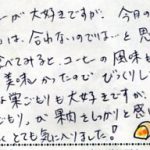 ーが大好きですが、今月の
は、合わないのでは…と思
べてみると、コーヒーの風味も
美味かったので びっくりし
な栗どらも大好きですが、
どらもり。が 釉もしっかりと感
くとても気に入りました！